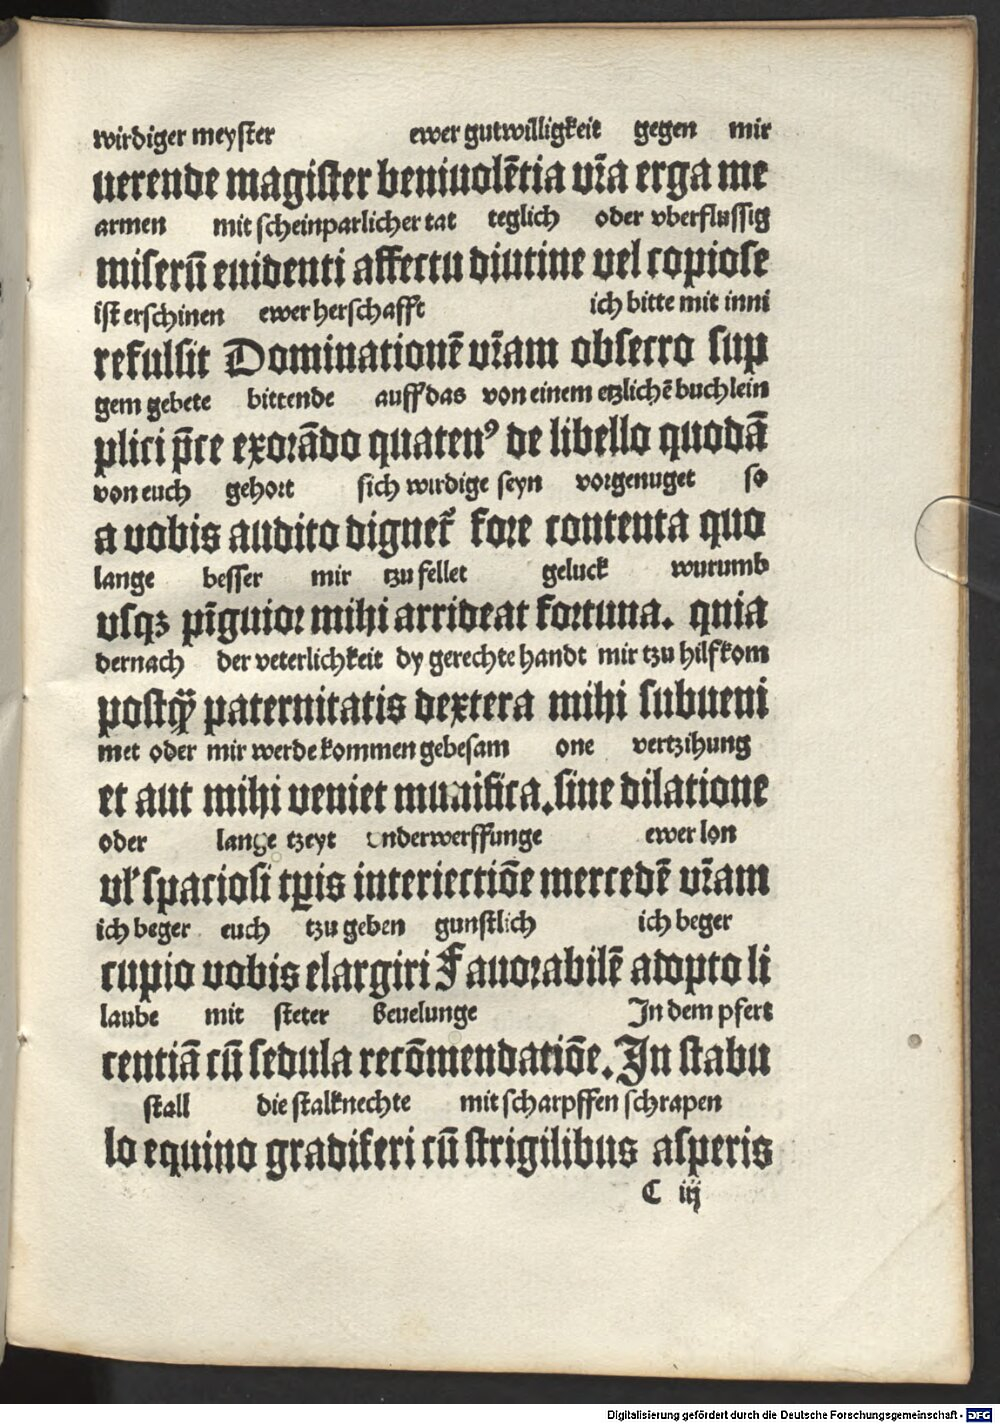 wirdiger meyster ewer gutwilligkeit gegen mir
uerende magister beniuolētia vr̄a erga me
armen mit scheinparlicher tat teglich oder vberflussig
miserū euidenti affectu diutine vel copiose
ist erschinen ewer herschafft ich bitte mit inni
refulsit Dominationē vr̄am obsecro sup
gem gebete bittende auff das von einem etzlichē buchlein
plici p̄ce exorādo quatenꝰ de libello quodā
von euch gehort sich wirdige seyn vorgenuget so
a vobis audito dignet᷑ fore contenta quo
lange besser mir tzu fellet geluck wurumb
vsqꝫ pīguior mihi arrideat fortuna. quia
dernach der veterlichkeit dy gerechte handt mir tzu hilf kom
postq̄ȝ paternitatis dextera mihi subueni
met oder mir werde kommen gebesam one vertzihung
et aut mihi veniet munifica. sine dilatione
oder lange tzeyt vnderwerffunge ewer lon
vl᷑ spaciosi tp̄is interiectiōe mercedē vr̄am
ich beger euch tzu geben gunstlich ich beger
cupio vobis elargiri Fauorabilē adopto li
laube mit steter Beuelunge In dem pfert
centiā cū sedula recōmendatiōe. In stabu
stall die stalknechte mit scharpffen schrapen
lo equino gradiferi cū strigilibus asperis
C iij
Digitalisierung gefördert durch die Deutsche Forschungsgemeinschaft - DFG